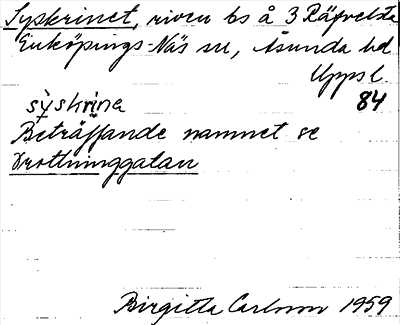 Syskrinet, riven bs å 3 Räfvelsta
Enköpings-Näs sn, Åsunda hd
Upps l.
84
syskrina
Beträffande namnet se
Drottninggatan
Birgitta Carlsson 1959